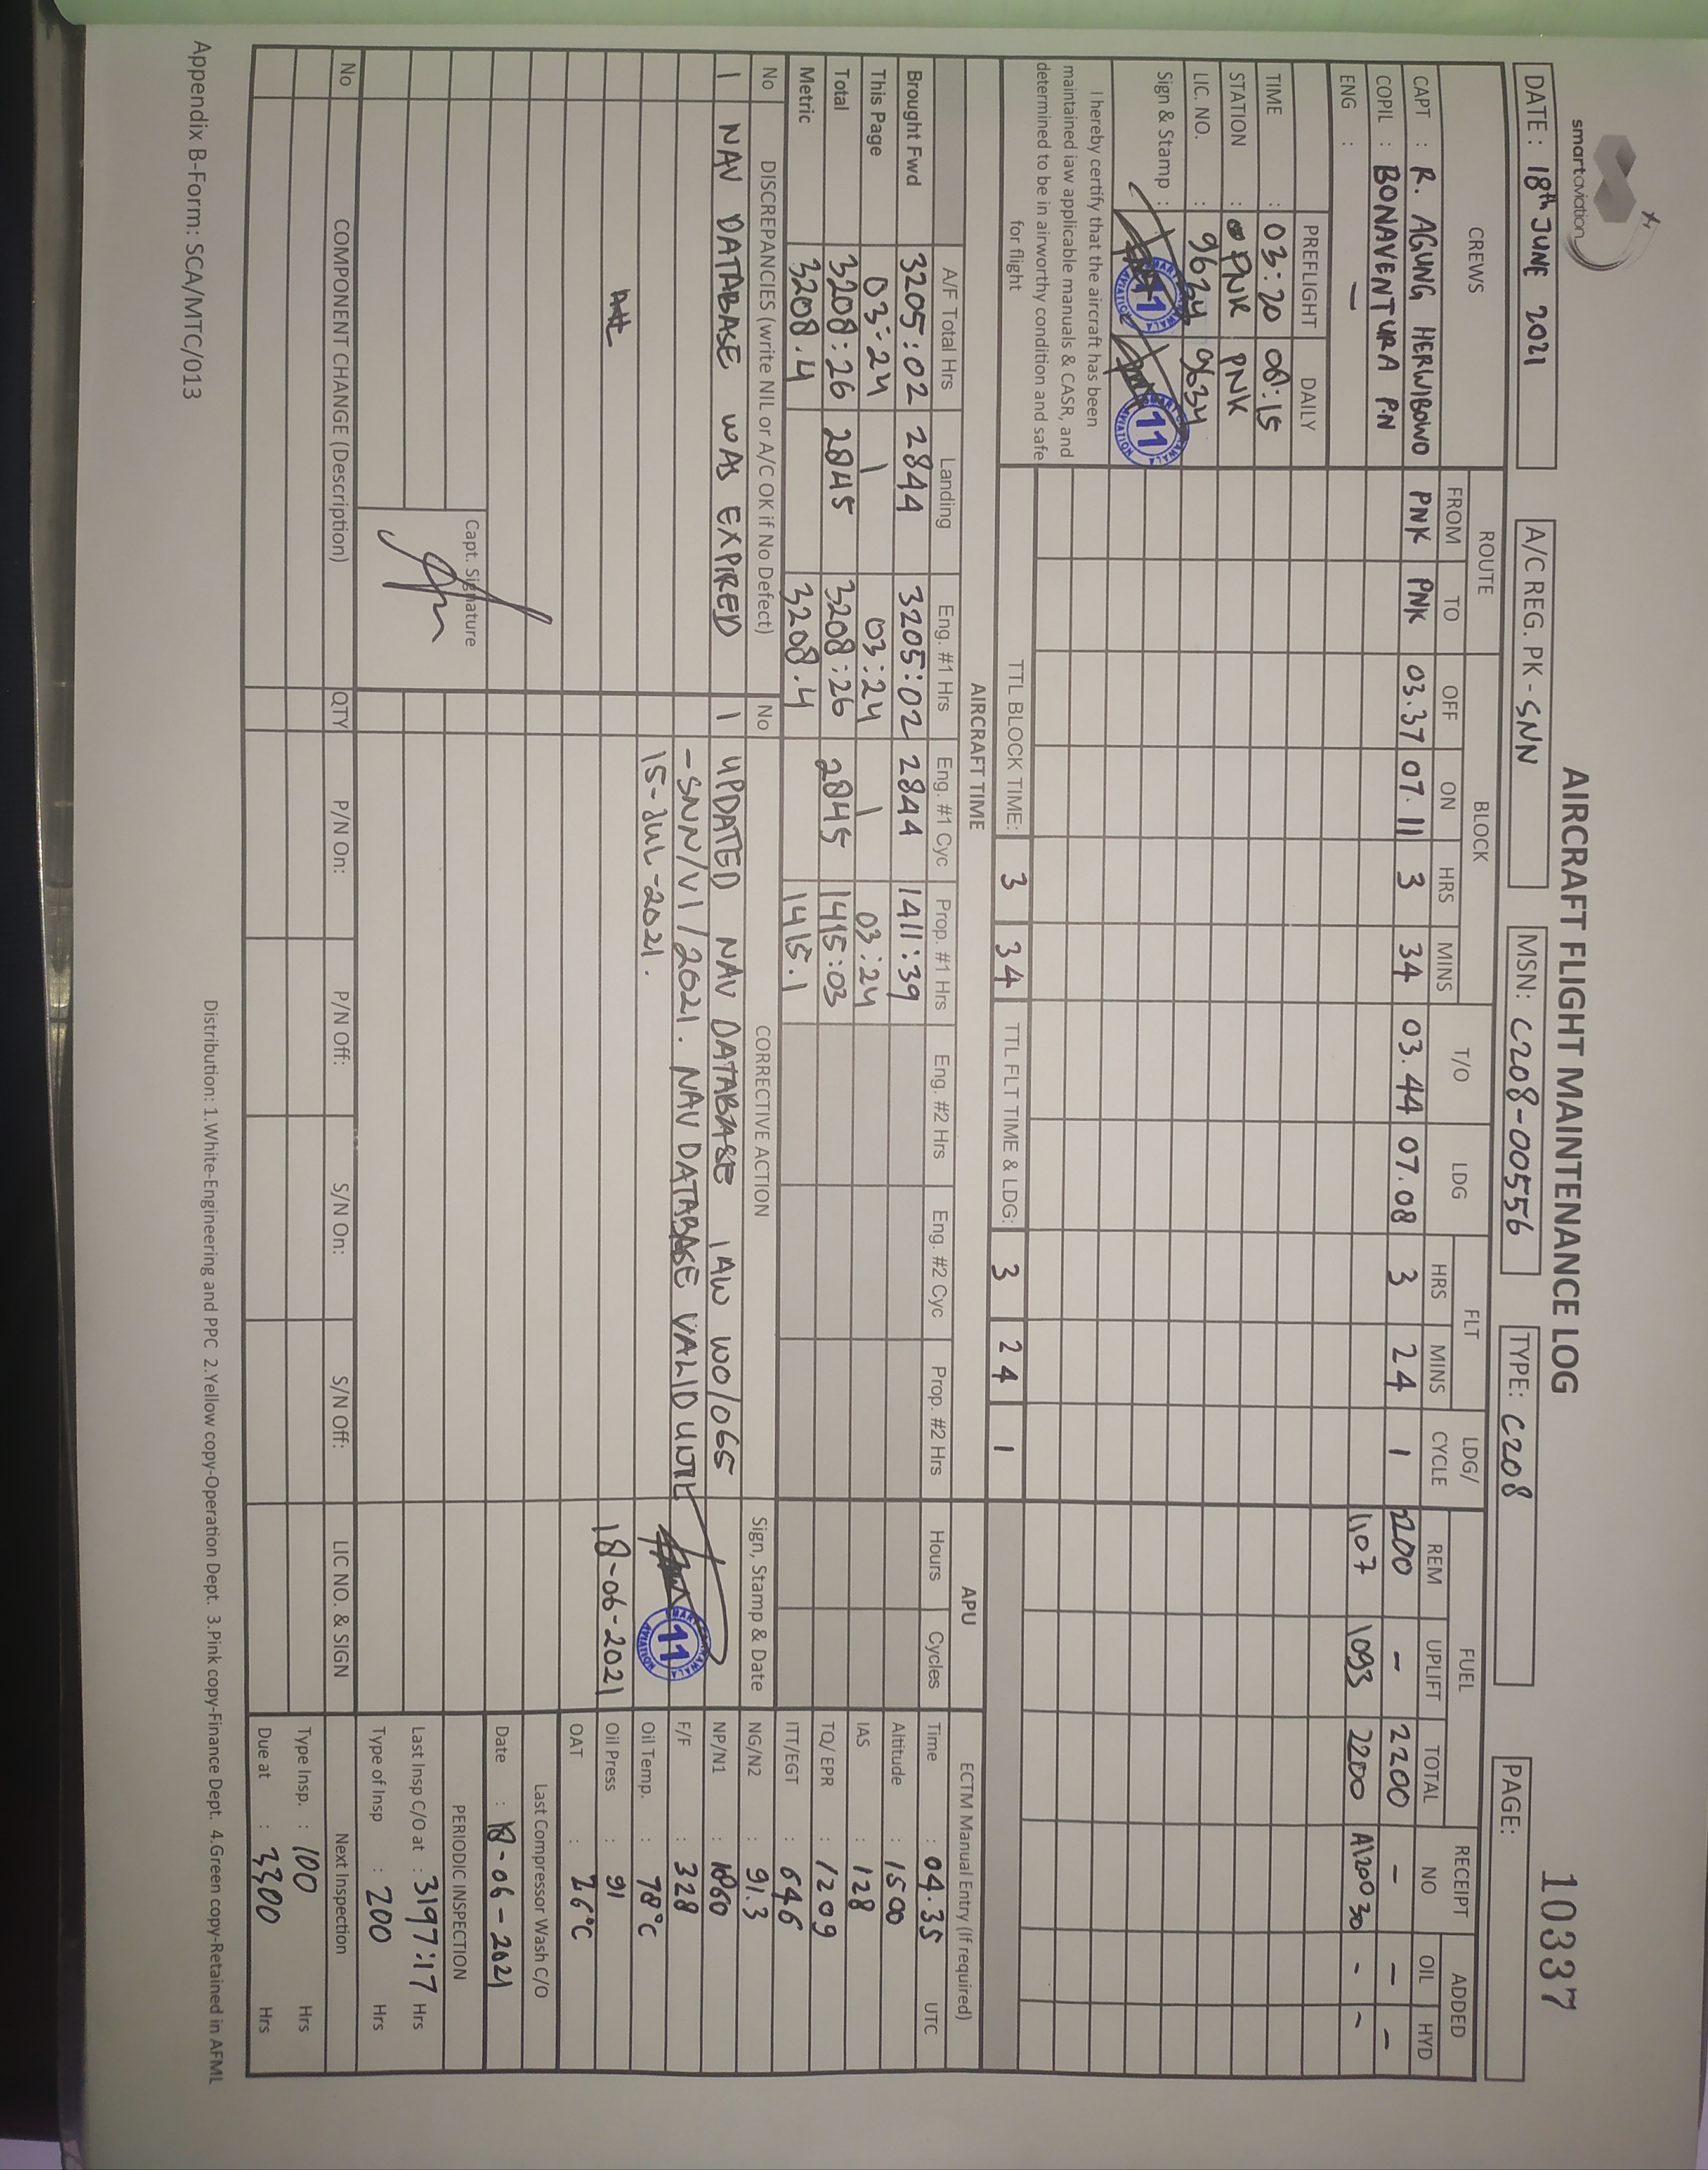 smartaviation
AIRCRAFT FLIGHT MAINTENANCE LOG
10337
DATE : 18th JUNE 2021 A/C REG. PK - SNN MSN: C208-00556 TYPE: C208 PAGE:
CREWS ROUTE BLOCK T/O LDG FLT LDG/ CYCLE FUEL RECEIPT NO ADDED
FROM TO OFF ON HRS MINS HRS MINS REM UPLIFT TOTAL OIL HYD
CAPT : R. AGUNG HERWIBOWO PNK PNK 03.37 07.11 3 34 03.44 07.08 3 24 1 2200 - 2200 - - -
COPIL : BONAVENTURA P.N 1107 1093 2200 A120030 - -
ENG : -
PREFLIGHT DAILY
TIME : 03:20 08:15
STATION : PNK PNK
LIC. NO. : 9634 9634
Sign & Stamp :
11 11
I hereby certify that the aircraft has been
maintained iaw applicable manuals & CASR, and
determined to be in airworthy condition and safe
for flight
TTL BLOCK TIME: 3 34 TTL FLT TIME & LDG: 3 24 1
AIRCRAFT TIME APU ECTM Manual Entry (If required)
A/F Total Hrs Landing Eng. #1 Hrs Eng. #1 Cyc Prop. #1 Hrs Eng. #2 Hrs Eng. #2 Cyc Prop. #2 Hrs Hours Cycles Time : 04.35 UTC
Brought Fwd 3205:02 2844 3205:02 2844 1411:39 Altitude : 1500
This Page 03:24 1 03:24 1 03:24 IAS : 128
Total 3208:26 2845 3208:26 2845 1415:03 TQ/ EPR : 1209
Metric 3208.4 3208.4 1415.1 ITT/EGT : 646
No DISCREPANCIES (write NIL or A/C OK if No Defect) No CORRECTIVE ACTION Sign, Stamp & Date NG/N2 : 91.3
1 NAV DATABASE WAS EXPIRED 1 UPDATED NAV DATABASE IAW WO/065 NP/N1 : 1860
-SNN/VI/2021. NAV DATABASE VALID UNTIL 11 F/F : 328
15-JUL-2021. Oil Temp. : 78°C
18-06-2021 Oil Press : 91
OAT : 26°C
Last Compressor Wash C/O
Capt. Signature Date : 18-06-2021
PERIODIC INSPECTION
Last Insp C/O at : 3197:17 Hrs
Type of Insp : 200 Hrs
No COMPONENT CHANGE (Description) QTY P/N On: P/N Off: S/N On: S/N Off: LIC NO. & SIGN Next Inspection
Type Insp. : 100 Hrs
Due at : 3300 Hrs
Appendix B-Form: SCA/MTC/013
Distribution: 1.White-Engineering and PPC 2.Yellow copy-Operation Dept. 3.Pink copy-Finance Dept. 4.Green copy-Retained in AFML